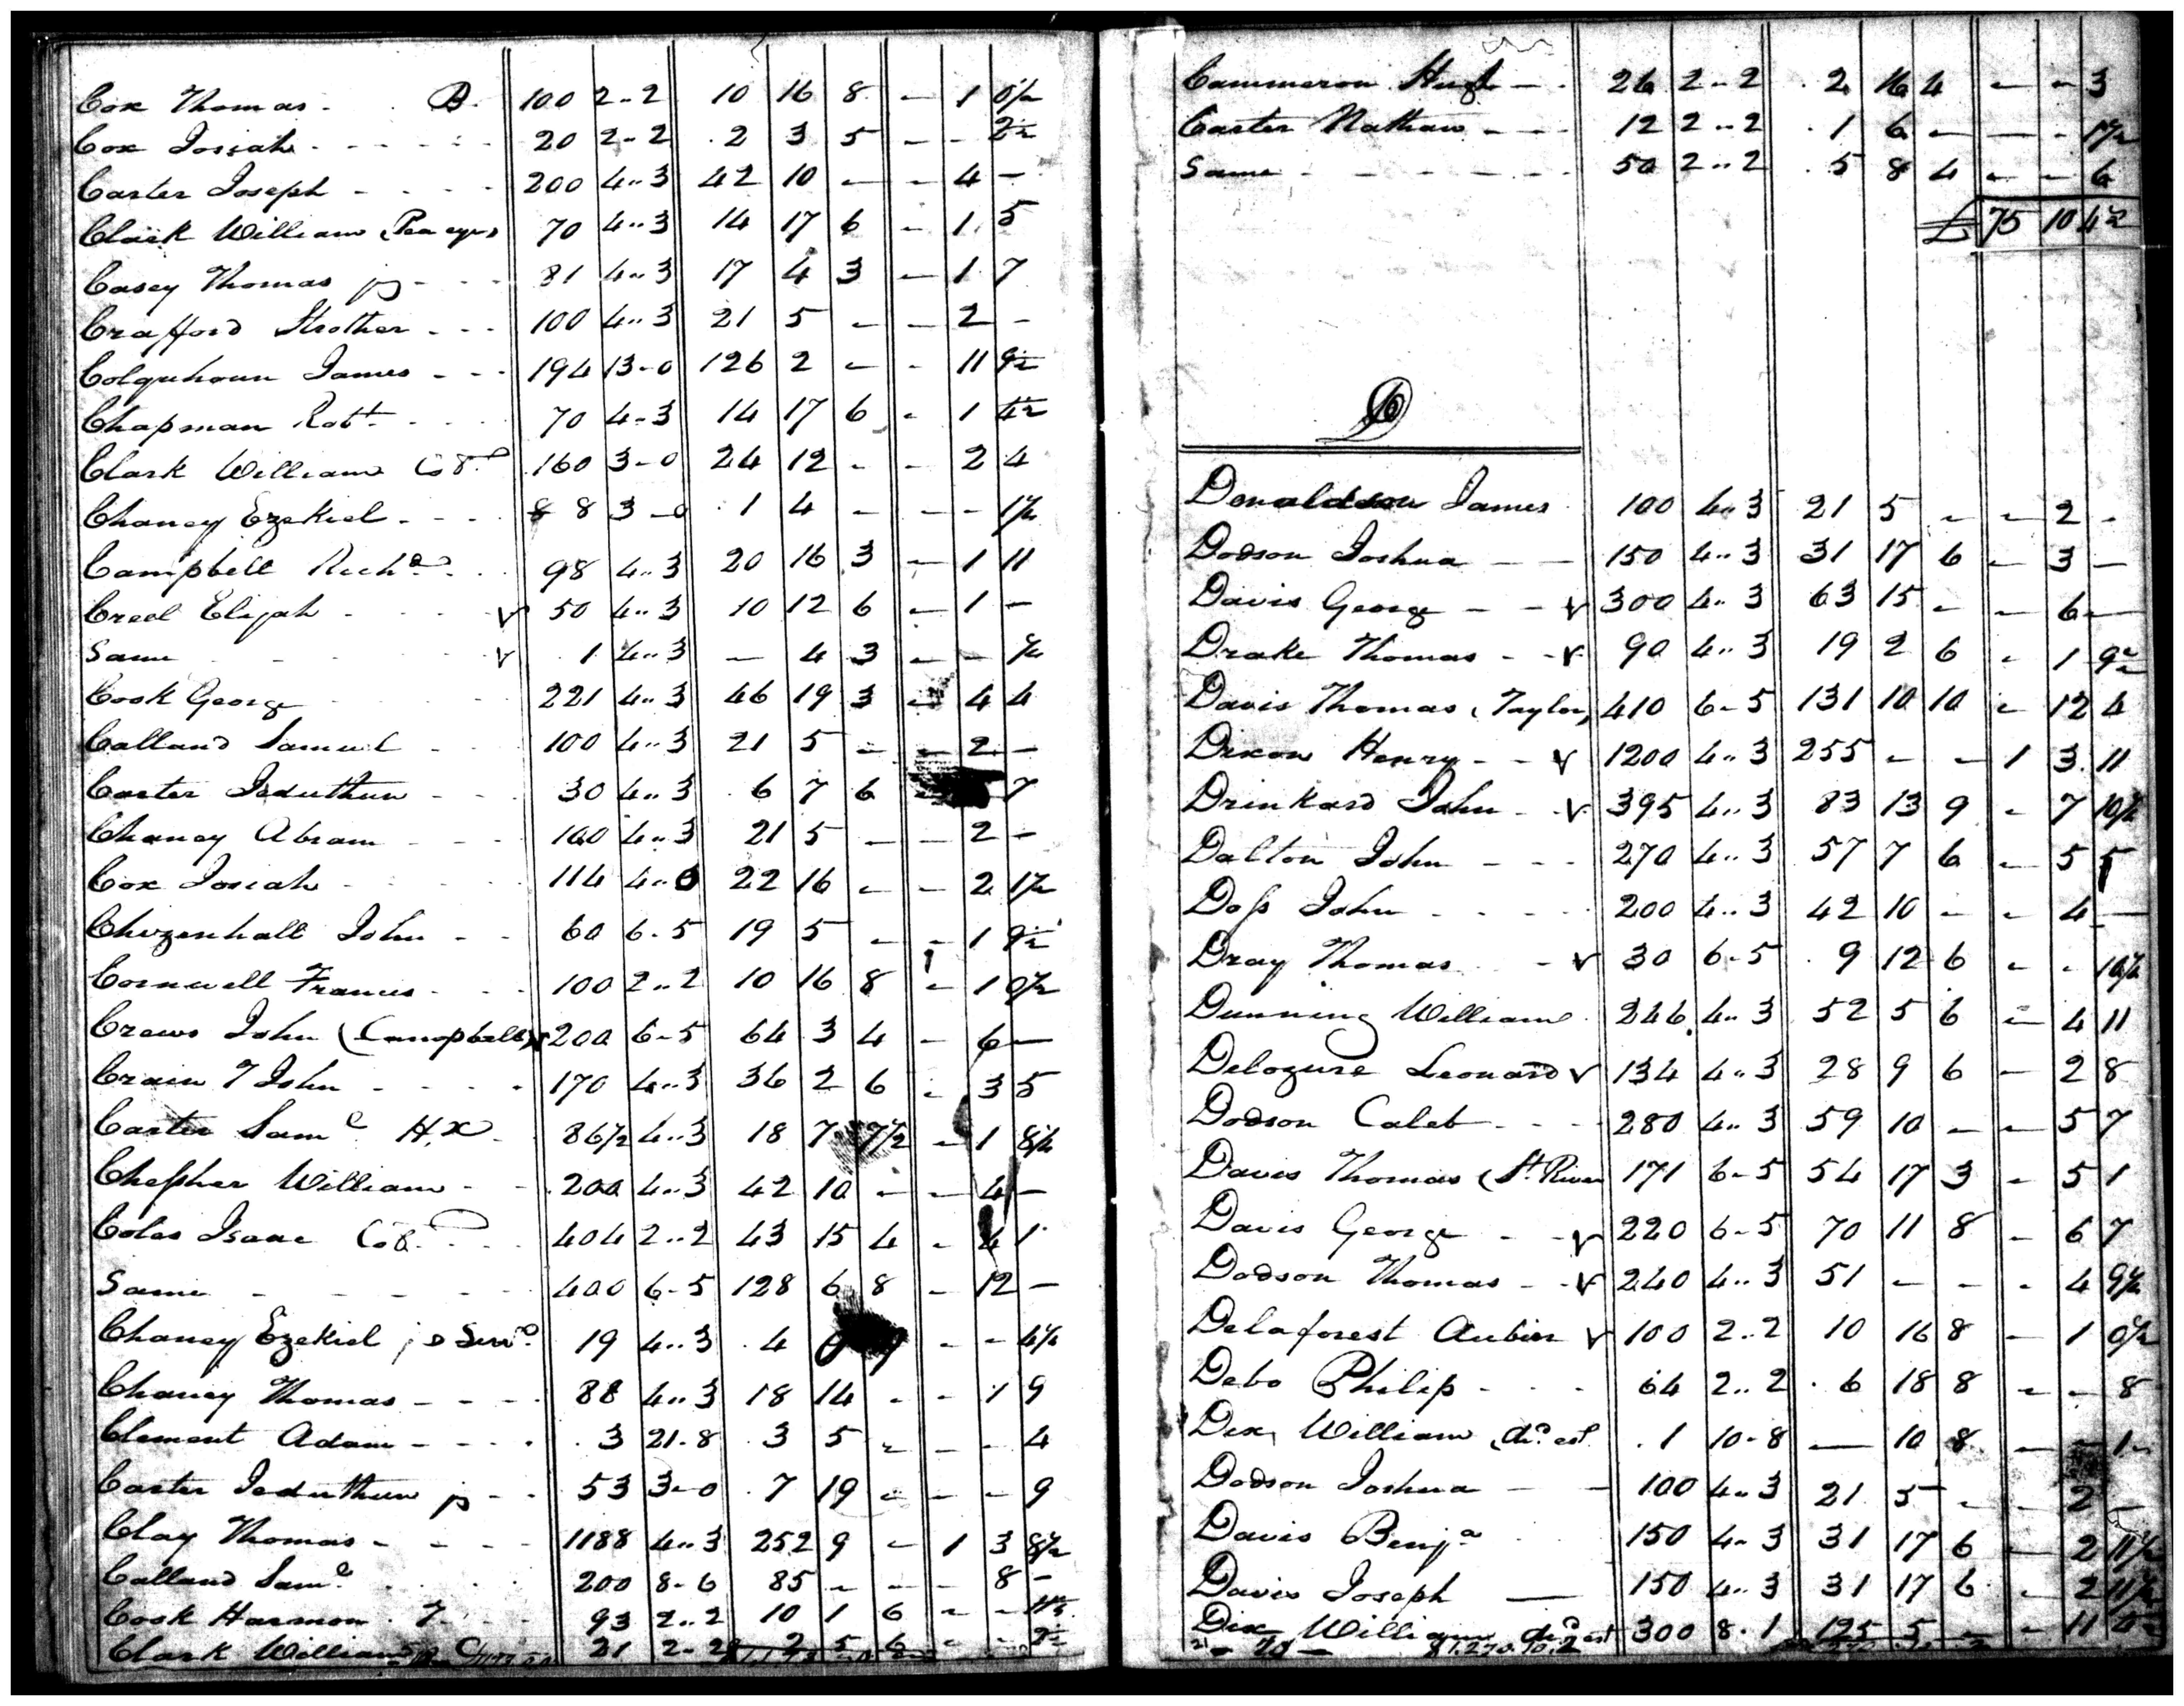 Cox Thomas B. 100 2..2 10 16 8 – 1 0½
Cox Josiah 20 2-2 2 3 5 – – 2½
Carter Joseph 200 4..3 42 10 – – 4 –
Clark William (Pea eyes) 70 4..3 14 17 6 – 1 5
Casey Thomas 81 4..3 17 4 3 – 1 7
Crafford Strother 100 4..3 21 5 – – 2 –
Colquhoun James 194 13-0 126 2 – – 11 9½
Chapman Robt. 70 4-3 14 17 6 – 1 4½
Clark William 160 3-0 24 12 – – 2 4
Chaney Ezekiel 8 3-0 1 4 – – – 1½
Campbell Richd. 98 4..3 20 16 3 – 1 11
Creel Elijah v 50 4..3 10 12 6 – 1 –
Same v 1 4..3 – 4 3 – – ½
Cook George 221 4..3 46 19 3 – 4 4
Calland Samuel 100 4..3 21 5 – – 2 –
Carter Jeduthun 30 4..3 6 7 6 7
Chaney Abram 100 4..3 21 5 – – 2 –
Cox Josiah 114 4..0 22 16 – – 2 1½
Chizenhall John 60 6-5 19 5 – – 1 9½
Cornwell Francis 100 2..2 10 16 8 – 1 0½
Crews John (Campbell) v 200 6-5 64 3 4 – 6 –
Crain John 170 4..3 36 2 6 – 3 5
Carter Saml. H,x 86½ 4..3 18 7 7½ – 1 8½
Chessher William 200 4..3 42 10 – – 4 –
Coles Isaac Col. 404 2..2 43 15 4 – 4 1
Same 400 6-5 128 6 8 – 12 –
Chaney Ezekiel 19 4..3 4 – – 4½
Chaney Thomas 88 4..3 18 14 – – 1 9
Clement Adam 3 21-8 3 5 – – – 4
Carter Jeduthun 53 3-0 7 19 – – – 9
Clay Thomas 1188 4..3 252 9 – 1 3 8½
Calland Saml. 200 8-6 85 – – – 8 –
Cook Harmon 93 2..2 10 1 6 – – 11½
Clark William 21 2-2 2 5 6 – – 2½
Cammeron Hugh 26 2-2 2 16 4 – – 3
Carter Nathan 12 2..2 1 6 – – – 1½
Same 50 2..2 5 8 4 – – 6
£ 75 10 4½
D
Donaldson James 100 4..3 21 5 – – 2 –
Dodson Joshua 150 4..3 31 17 6 – 3 –
Davis George v 300 4..3 63 15 – – 6 –
Drake Thomas v 90 4..3 19 2 6 – 1 9½
Davis Thomas (Taylor) 410 6-5 131 10 10 – 12 4
Dixon Henry v 1200 4..3 255 – – 1 3 11
Drinkard John v 395 4..3 83 13 9 – 7 10½
Dalton John 270 4..3 57 7 6 – 5 5
Doss John 200 4..3 42 10 – – 4 –
Dray Thomas v 30 6-5 9 12 6 – – 10½
Dunning William 246 4..3 52 5 6 – 4 11
Delozure Leonard v 134 4..3 28 9 6 – 2 8
Dodson Caleb 280 4..3 59 10 – – 5 7
Davis Thomas (St. River 171 6-5 54 17 3 – 5 1
Davis George v 220 6-5 70 11 8 – 6 7
Dodson Thomas v 240 4..3 51 – – – 4 9½
Delaforest Aubin v 100 2..2 10 16 8 – 1 0½
Debo Philip 64 2..2 6 18 8 – – 8
Dix William decd. est. 1 10-8 – 10 8 – – 1
Dodson Joshua 100 4..3 21 5 – – 2 –
Davis Benja. 150 4-3 31 17 6 – 2 11½
Davis Joseph 150 4..3 31 17 6 – 2 11½
Dix William decd. est 300 8-1 125 5 – – 11